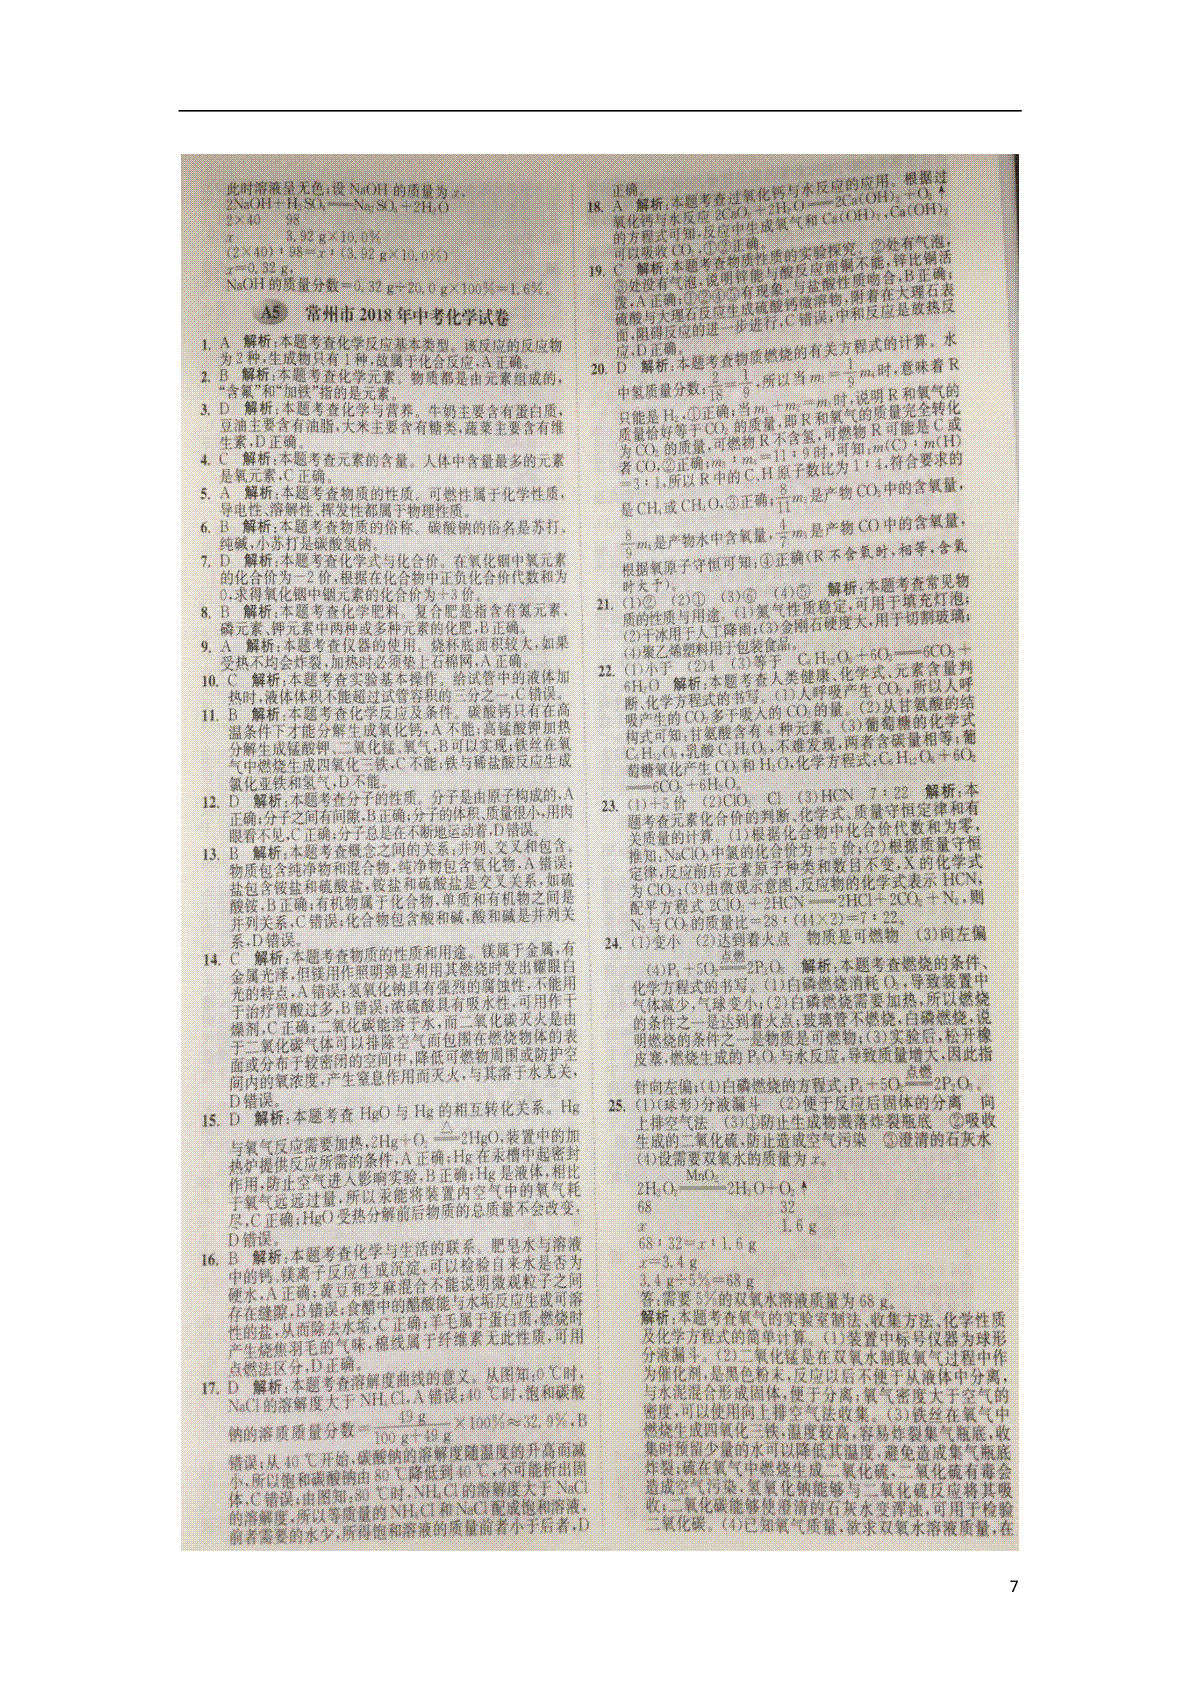 此时溶液呈无色;设 NaOH 的质量为 x。
2NaOH+H₂SO₄══Na₂SO₄+2H₂O
2×40 98
x 3.92 g×10.0%
(2×40)∶98=x∶(3.92 g×10.0%)
x=0.32 g,
NaOH 的质量分数=0.32 g÷20.0 g×100%=1.6%。
A5 常州市 2018 年中考化学试卷
1. A 解析:本题考查化学反应基本类型。该反应的反应物
为 2 种,生成物只有 1 种,故属于化合反应,A 正确。
2. B 解析:本题考查化学元素。物质都是由元素组成的,
“含氟”和“加铁”指的是元素。
3. D 解析:本题考查化学与营养。牛奶主要含有蛋白质,
豆油主要含有油脂,大米主要含有糖类,蔬菜主要含有维
生素,D 正确。
4. C 解析:本题考查元素的含量。人体中含量最多的元素
是氧元素,C 正确。
5. A 解析:本题考查物质的性质。可燃性属于化学性质,
导电性、溶解性、挥发性都属于物理性质。
6. B 解析:本题考查物质的俗称。碳酸钠的俗名是苏打、
纯碱,小苏打是碳酸氢钠。
7. D 解析:本题考查化学式与化合价。在氧化铟中氧元素
的化合价为-2 价,根据在化合物中正负化合价代数和为
0,求得氧化铟中铟元素的化合价为+3 价。
8. B 解析:本题考查化学肥料。复合肥是指含有氮元素、
磷元素、钾元素中两种或多种元素的化肥,B 正确。
9. A 解析:本题考查仪器的使用。烧杯底面积较大,如果
受热不均会炸裂,加热时必须垫上石棉网,A 正确。
10. C 解析:本题考查实验基本操作。给试管中的液体加
热时,液体体积不能超过试管容积的三分之一,C 错误。
11. B 解析:本题考查化学反应及条件。碳酸钙只有在高
温条件下才能分解生成氧化钙,A 不能;高锰酸钾加热
分解生成锰酸钾、二氧化锰、氧气,B 可以实现;铁丝在氧
气中燃烧生成四氧化三铁,C 不能;铁与稀盐酸反应生成
氯化亚铁和氢气,D 不能。
12. D 解析:本题考查分子的性质。分子是由原子构成的,A
正确;分子之间有间隙,B 正确;分子的体积、质量很小,用肉
眼看不见,C 正确;分子总是在不断地运动着,D 错误。
13. B 解析:本题考查概念之间的关系:并列、交叉和包含。
物质包含纯净物和混合物,纯净物包含氧化物,A 错误;
盐包含铵盐和硫酸盐,铵盐和硫酸盐是交叉关系,如硫
酸铵,B 正确;有机物属于化合物,单质和有机物之间是
并列关系,C 错误;化合物包含酸和碱,酸和碱是并列关
系,D 错误。
14. C 解析:本题考查物质的性质和用途。镁属于金属,有
金属光泽,但镁用作照明弹是利用其燃烧时发出耀眼白
光的特点,A 错误;氢氧化钠具有强烈的腐蚀性,不能用
于治疗胃酸过多,B 错误;浓硫酸具有吸水性,可用作干
燥剂,C 正确;二氧化碳能溶于水,而二氧化碳灭火是由
于二氧化碳气体可以排除空气而包围在燃烧物体的表
面或分布于较密闭的空间中,降低可燃物周围或防护空
间内的氧浓度,产生窒息作用而灭火,与其溶于水无关,
D 错误。
15. D 解析:本题考查 HgO 与 Hg 的相互转化关系。Hg
与氧气反应需要加热,2Hg+O₂ △══ 2HgO,装置中的加
热炉提供反应所需的条件,A 正确;Hg 在汞槽中起密封
作用,防止空气进入影响实验,B 正确;Hg 是液体,相比
于氧气远远过量,所以汞能将装置内空气中的氧气耗
尽,C 正确;HgO 受热分解前后物质的总质量不会改变,
D 错误。
16. B 解析:本题考查化学与生活的联系。肥皂水与溶液
中的钙、镁离子反应生成沉淀,可以检验自来水是否为
硬水,A 正确;黄豆和芝麻混合不能说明微观粒子之间
存在缝隙,B 错误;食醋中的醋酸能与水垢反应生成可溶
性的盐,从而除去水垢,C 正确;羊毛属于蛋白质,燃烧时
产生烧焦羽毛的气味,棉线属于纤维素无此性质,可用
点燃法区分,D 正确。
17. D 解析:本题考查溶解度曲线的意义。从图知:0 ℃时,
NaCl 的溶解度大于 NH₄Cl,A 错误;40 ℃时,饱和碳酸
钠的溶质质量分数=49 g/(100 g+49 g)×100%≈32.9%,B
错误;从 40 ℃开始,碳酸钠的溶解度随温度的升高而减
小,所以饱和碳酸钠由 80 ℃降低到 40 ℃,不可能析出固
体,C 错误;由图知:80 ℃时,NH₄Cl 的溶解度大于 NaCl
的溶解度,所以等质量的 NH₄Cl 和 NaCl 配成饱和溶液,
前者需要的水少,所得饱和溶液的质量前者小于后者,D
正确。
18. A 解析:本题考查过氧化钙与水反应的应用。根据过
氧化钙与水反应 2CaO₂+2H₂O══2Ca(OH)₂+O₂↑
的方程式可知,反应中生成氧气和 Ca(OH)₂,Ca(OH)₂
可以吸收 CO₂,①②正确。
19. C 解析:本题考查物质性质的实验探究。②处有气泡,
③处没有气泡,说明锌能与酸反应而铜不能,锌比铜活
泼,A 正确;①②④⑤有现象,与盐酸性质吻合,B 正确;
硫酸与大理石反应生成硫酸钙微溶物,附着在大理石表
面,阻碍反应的进一步进行,C 错误;中和反应是放热反
应,D 正确。
20. D 解析:本题考查物质燃烧的有关方程式的计算。水
中氢质量分数:2/18=1/9,所以当 m₁=1/9m₄时,意味着 R
只能是 H₂,①正确;当 m₁+m₂=m₃时,说明 R 和氧气的
质量恰好等于 CO₂ 的质量,即 R 和氧气的质量完全转化
为 CO₂ 的质量,可燃物 R 不含氢,可燃物 R 可能是 C 或
者 CO,②正确;m₃∶m₄=11∶9 时,可知:m(C)∶m(H)
=3∶1,所以 R 中的 C、H 原子数比为 1∶4,符合要求的
是 CH₄或 CH₄O,③正确;8/11m₃是产物 CO₂中的含氧量,
8/9m₄是产物水中含氧量,4/7m₅是产物 CO 中的含氧量,
根据氧原子守恒可知:④正确(R 不含氧时,相等,含氧
时大于)。
21. (1)② (2)① (3)⑥ (4)⑤ 解析:本题考查常见物
质的性质与用途。(1)氮气性质稳定,可用于填充灯泡;
(2)干冰用于人工降雨;(3)金刚石硬度大,用于切割玻璃;
(4)聚乙烯塑料用于包装食品。
22. (1)小于 (2)4 (3)等于 C₆H₁₂O₆+6O₂══6CO₂+
6H₂O 解析:本题考查人类健康、化学式、元素含量判
断、化学方程式的书写。(1)人呼吸产生 CO₂,所以人呼
吸产生的 CO₂多于吸入的 CO₂的量。(2)从甘氨酸的结
构式可知:甘氨酸含有 4 种元素。(3)葡萄糖的化学式
C₆H₁₂O₆,乳酸 C₃H₆O₃,不难发现,两者含碳量相等;葡
萄糖氧化产生 CO₂和 H₂O,化学方程式:C₆H₁₂O₆+6O₂
══6CO₂+6H₂O。
23. (1)+5 价 (2)ClO₂ Cl (3)HCN 7∶22 解析:本
题考查元素化合价的判断、化学式、质量守恒定律和有
关质量的计算。(1)根据化合物中化合价代数和为零,
推知:NaClO₃中氯的化合价为+5 价;(2)根据质量守恒
定律,反应前后元素原子种类和数目不变,X 的化学式
为 ClO₂;(3)由微观示意图,反应物的化学式表示 HCN,
配平方程式 2ClO₂+2HCN══2HCl+2CO₂+N₂,则
N₂与 CO₂的质量比=28∶(44×2)=7∶22。
24. (1)变小 (2)达到着火点 物质是可燃物 (3)向左偏
(4)P₄+5O₂ 点燃══ 2P₂O₅ 解析:本题考查燃烧的条件、
化学方程式的书写。(1)白磷燃烧消耗 O₂,导致装置中
气体减少,气球变小;(2)白磷燃烧需要加热,所以燃烧
的条件之一是达到着火点;玻璃管不燃烧,白磷燃烧,说
明燃烧的条件之一是物质是可燃物;(3)实验后,松开橡
皮塞,燃烧生成的 P₂O₅与水反应,导致质量增大,因此指
针向左偏;(4)白磷燃烧的方程式:P₄+5O₂ 点燃══ 2P₂O₅。
25. (1)(球形)分液漏斗 (2)便于反应后固体的分离 向
上排空气法 (3)①防止生成物溅落炸裂瓶底 ②吸收
生成的二氧化硫,防止造成空气污染 ③澄清的石灰水
(4)设需要双氧水的质量为 x。
2H₂O₂ MnO₂══ 2H₂O+O₂↑
68 32
x 1.6 g
68∶32=x∶1.6 g
x=3.4 g
3.4 g÷5%=68 g
答:需要 5%的双氧水溶液质量为 68 g。
解析:本题考查氧气的实验室制法、收集方法、化学性质
及化学方程式的简单计算。(1)装置中标号仪器为球形
分液漏斗。(2)二氧化锰是在双氧水制取氧气过程中作
为催化剂,是黑色粉末,反应以后不便于从液体中分离,
与水泥混合形成固体,便于分离;氧气密度大于空气的
密度,可以使用向上排空气法收集。(3)铁丝在氧气中
燃烧生成四氧化三铁,温度较高,容易炸裂集气瓶底,收
集时预留少量的水可以降低其温度,避免造成集气瓶底
炸裂;硫在氧气中燃烧生成二氧化硫,二氧化硫有毒会
造成空气污染,氢氧化钠能够与二氧化硫反应将其吸
收;二氧化碳能够使澄清的石灰水变浑浊,可用于检验
二氧化碳。(4)已知氧气质量,欲求双氧水溶液质量,在
7